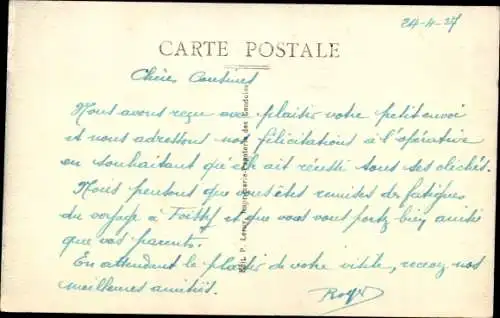 24-4-37
CARTE POSTALE
Chères Cousines
Nous avons reçu avec plaisir votre petit envoi
et nous adressons nos félicitations à l'opérative
en souhaitant qu'elle ait réussi tous ses clichés.
Nous pensons que vous êtes remises de fatigues
du voyage à et que vous vous portez bien
que vos parents.
En attendant le plaisir de votre visite, recevez nos
meilleures amitiés.
Roger
Edit. P. Imprimerie-Papeterie des